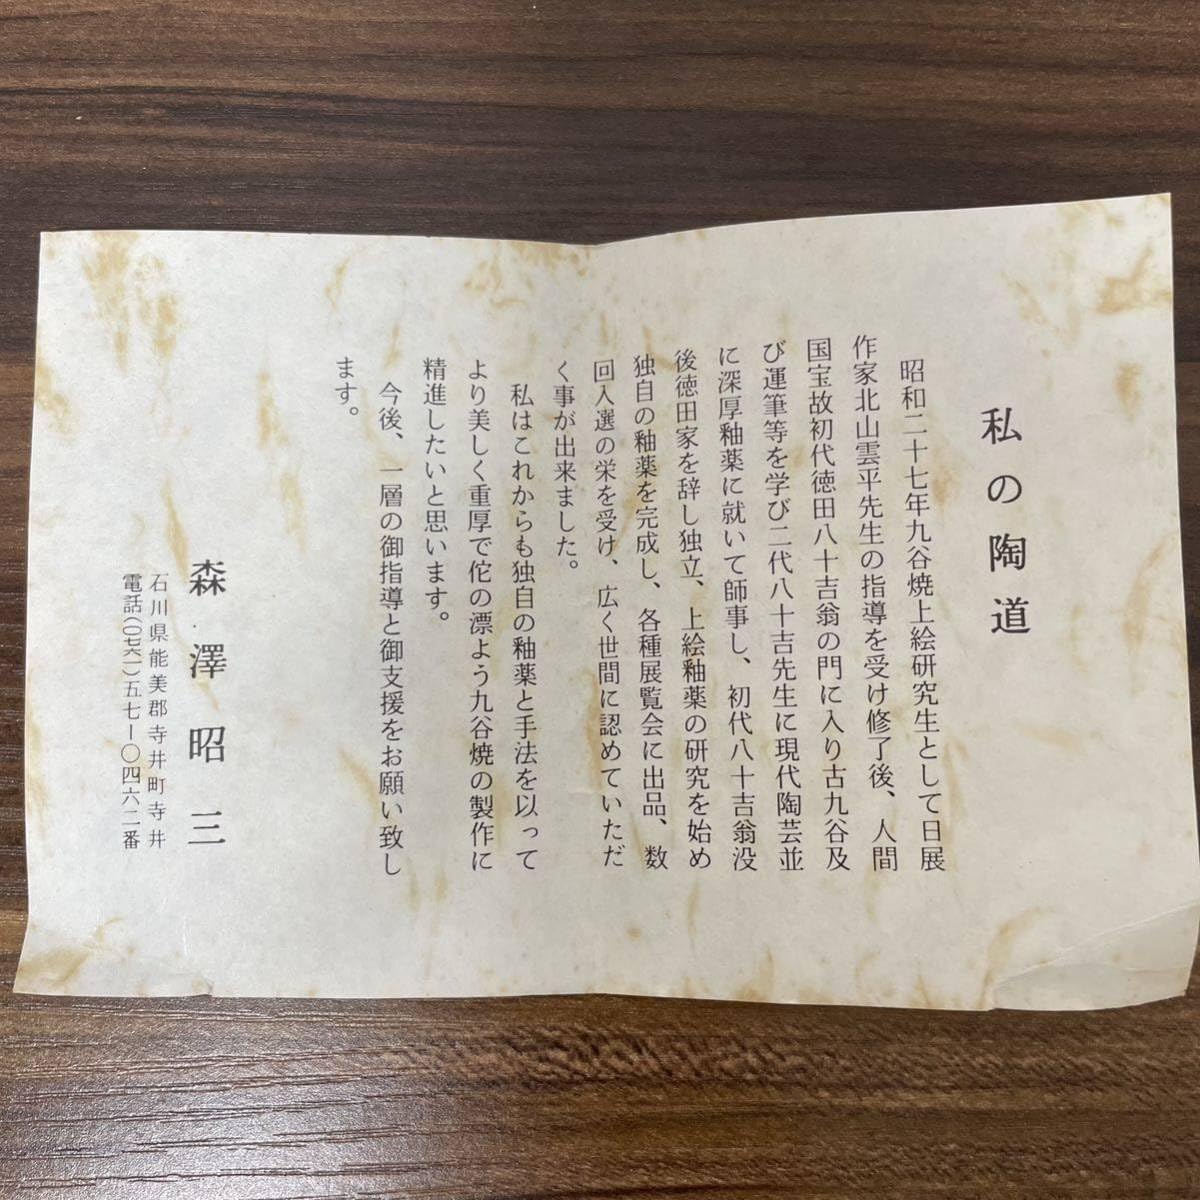 私の陶道
昭和二十七年九谷焼上絵研究生として日展
作家北山雲平先生の指導を受け修了後、人間
国宝故初代徳田八十吉翁の門に入り古九谷及
び運筆等を学び二代八十吉先生に現代陶芸並
に深厚釉薬に就いて師事し、初代八十吉翁没
後徳田家を辞し独立、上絵釉薬の研究を始め
独自の釉薬を完成し、各種展覧会に出品、数
回入選の栄を受け、広く世間に認めていただ
く事が出来ました。
私はこれからも独自の釉薬と手法を以って
より美しく重厚で佗の漂よう九谷焼の製作に
精進したいと思います。
今後、一層の御指導と御支援をお願い致し
ます。
森澤昭三
石川県能美郡寺井町寺井
電話(〇七六一)五七ー〇四六二番